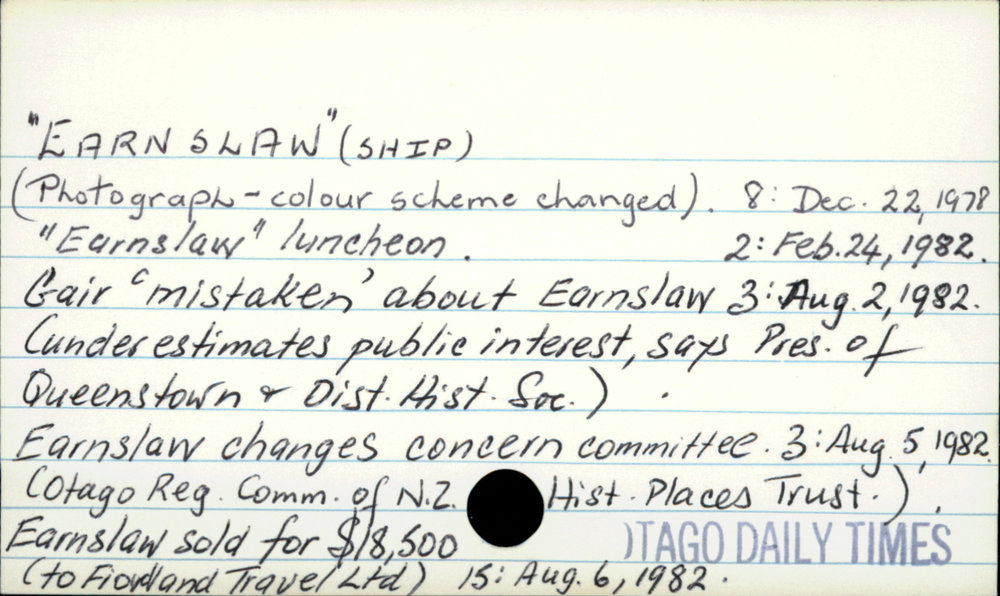 "EARNSLAW" (SHIP)
(Photograph - colour scheme changed). 8: Dec. 22, 1978
"Earnslaw" luncheon. 2: Feb. 24, 1982.
Gair 'mistaken' about Earnslaw 3: Aug. 2, 1982.
(underestimates public interest, says Pres. of
Queenstown & Dist. Hist. Soc.) .
Earnslaw changes concern committee. 3: Aug. 5, 1982.
(Otago Reg. Comm. of N.Z. Hist. Places Trust.) .
Earnslaw sold for $18,500
OTAGO DAILY TIMES
(to Fiordland Travel Ltd) 15: Aug. 6, 1982.